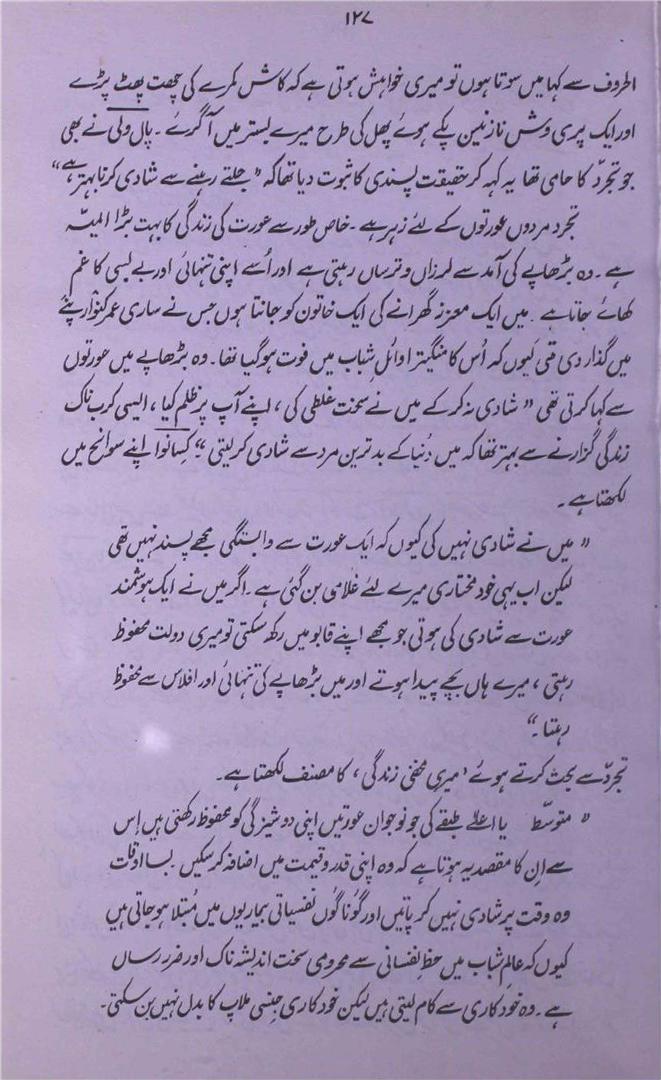 ۱۲۷
اطروف سے کہا میں سوتا ہوں تو میری خواہش ہوتی ہے کہ کاش کمرے کی چھت پھٹ پڑے
اور ایک پری وش نازنین پکے ہوئے پھل کی طرح میرے بستر میں آ گرے ۔ پال ولی نے بھی
جو تجرّد کا حامی تھا یہ کہہ کر حقیقت پسندی کا ثبوت دیا تھا کہ " جلتے رہنے سے شادی کرنا بہتر ہے "
تجرد مردوں عورتوں کے لئے زہر ہے ۔ خاص طور سے عورت کی زندگی کا بہت بڑا المیّہ
ہے ۔ وہ بڑھاپے کی آمد سے لرزاں و ترساں رہتی ہے اور اُسے اپنی تنہائی اور بے بسی کا غم
کھائے جاتا ہے ۔ میں ایک معزز گھرانے کی ایک خاتون کو جانتا ہوں جس نے ساری عمر کنوارپنے
میں گذار دی تھی کیوں کہ اُس کا منگیتر اوائلِ شباب میں فوت ہو گیا تھا ۔ وہ بڑھاپے میں عورتوں
سے کہا کرتی تھی " شادی نہ کر کے میں نے سخت غلطی کی ، اپنے آپ پر ظلم کیا ، ایسی کرب ناک
زندگی گزارنے سے بہتر تھا کہ میں دُنیا کے بدترین مرد سے شادی کر لیتی ۔" کسانوا اپنے سوانح میں
لکھتا ہے ۔
" میں نے شادی نہیں کی کیوں کہ ایک عورت سے وابستگی مجھے پسند نہیں تھی
لیکن اب یہی خود مختاری میرے لئے غلامی بن گئی ہے ۔ اگر میں نے ایک ہوشمند
عورت سے شادی کی ہوتی جو مجھے اپنے قابو میں رکھ سکتی تو میری دولت محفوظ
رہتی ، میرے ہاں بچے پیدا ہوتے اور میں بڑھاپے کی تنہائی اور افلاس سے محفوظ
رہتا ۔"
تجرّد سے بحث کرتے ہوئے ' میری مخفی زندگی ، کا مصنف لکھتا ہے ۔
" متوسّط یا اعلےٰ طبقے کی جو نوجوان عورتیں اپنی دوشیزگی کو محفوظ رکھتی ہیں اِس
سے اِن کا مقصد یہ ہوتا ہے کہ وہ اپنی قدر و قیمت میں اضافہ کر سکیں ۔ بسا اوقات
وہ وقت پر شادی نہیں کر پاتیں اور گوناگوں نفسیاتی بیماریوں میں مُبتلا ہو جاتی ہیں
کیوں کہ عالمِ شباب میں حظِ نفسانی سے محرومی سخت اندیشہ ناک اور ضرر رساں
ہے ۔ وہ خود کاری سے کام لیتی ہیں لیکن خود کاری جنسی ملاپ کا بدل نہیں بن سکتی ۔